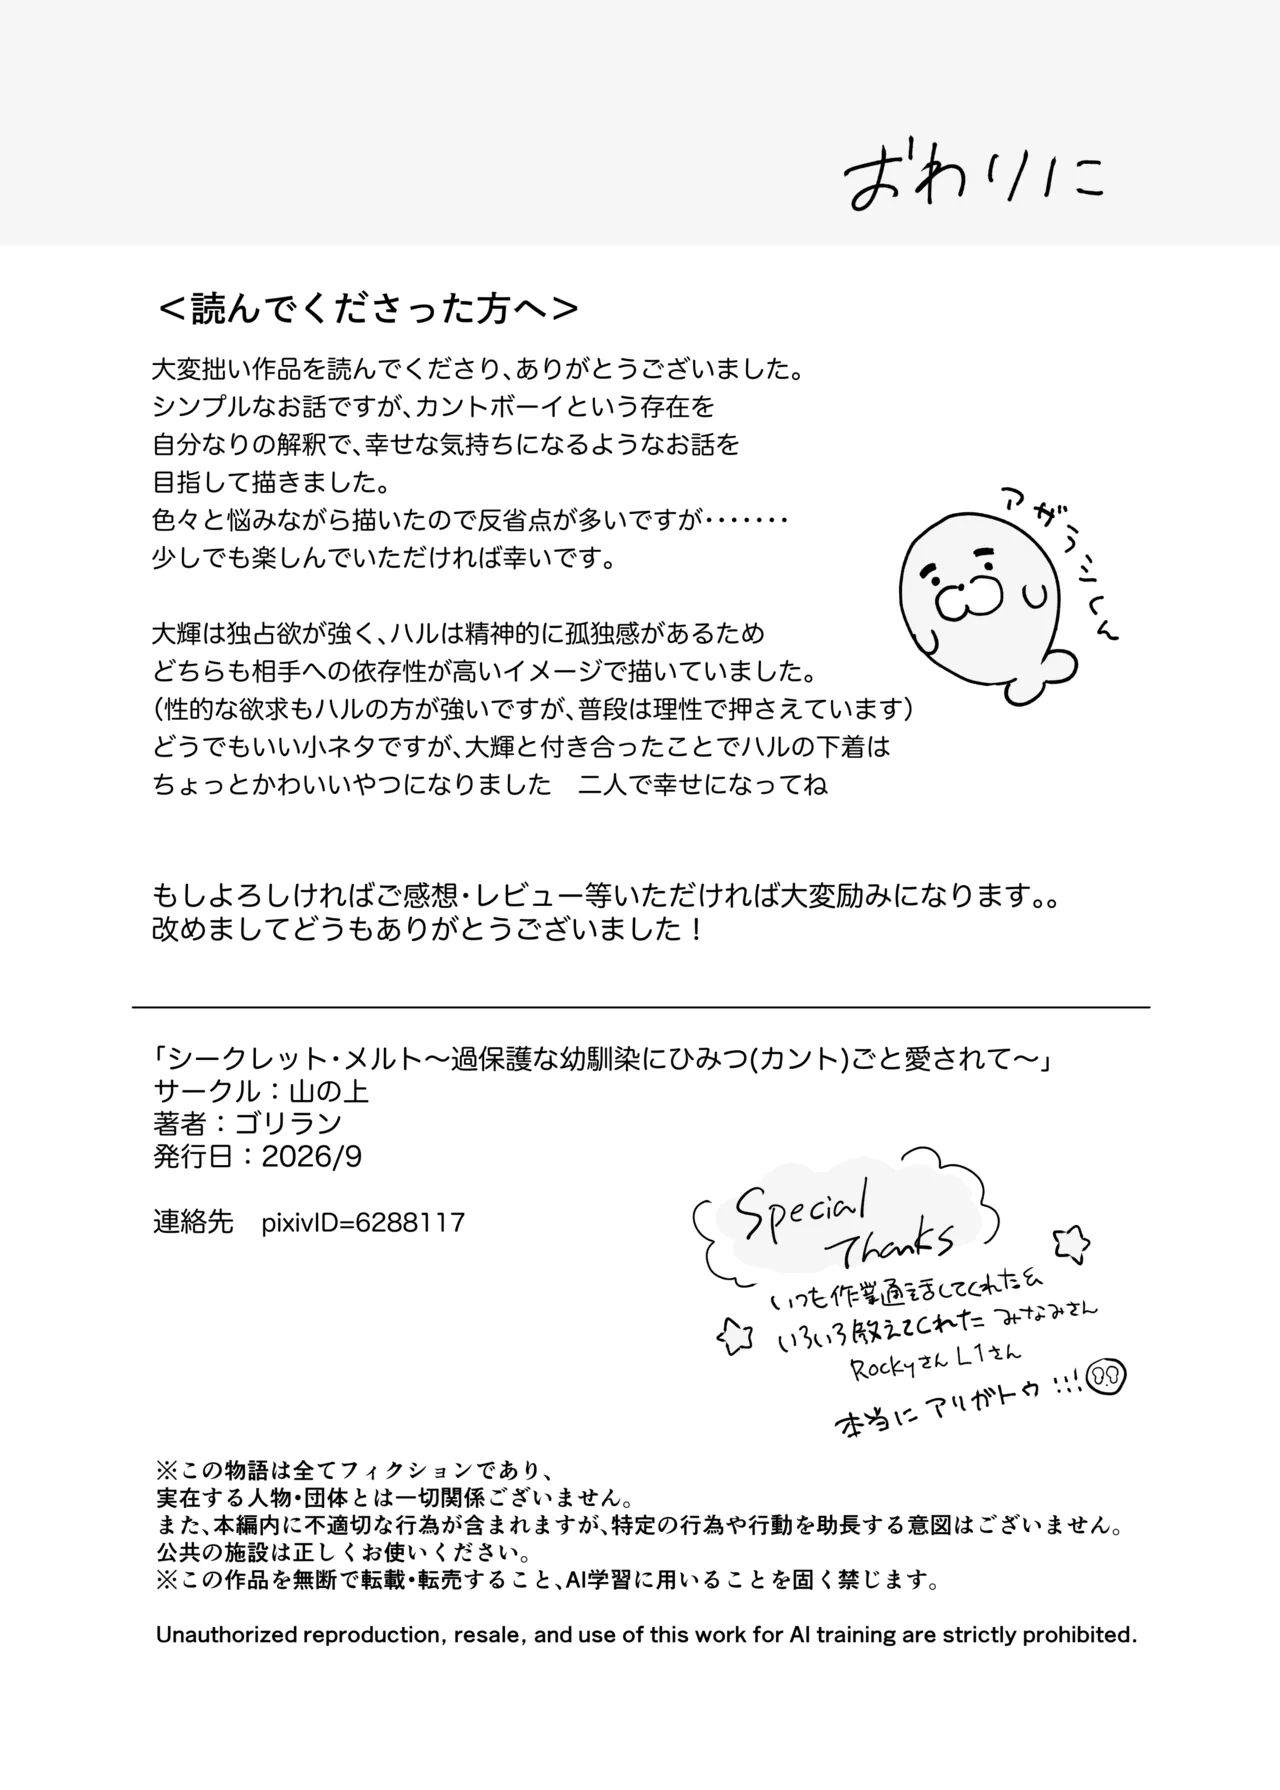 おわりに
＜読んでくださった方へ＞
大変拙い作品を読んでくださり、ありがとうございました。
シンプルなお話ですが、カントボーイという存在を
自分なりの解釈で、幸せな気持ちになるようなお話を
目指して描きました。
色々と悩みながら描いたので反省点が多いですが・・・・・・・
少しでも楽しんでいただければ幸いです。
アザラシくん
大輝は独占欲が強く、ハルは精神的に孤独感があるため
どちらも相手への依存性が高いイメージで描いていました。
（性的な欲求もハルの方が強いですが、普段は理性で押さえています）
どうでもいい小ネタですが、大輝と付き合ったことでハルの下着は
ちょっとかわいいやつになりました　二人で幸せになってね
もしよろしければご感想・レビュー等いただければ大変励みになります。。
改めましてどうもありがとうございました！
「シークレット・メルト～過保護な幼馴染にひみつ(カント)ごと愛されて～」
サークル：山の上
著者：ゴリラン
発行日：2026/9
連絡先　pixivID=6288117
Special
Thanks
いつも作業通話してくれた&
いろいろ教えてくれた みなみさん
Rockyさん L1さん
本当に アリガトウ!!!
※この物語は全てフィクションであり、
実在する人物・団体とは一切関係ございません。
また、本編内に不適切な行為が含まれますが、特定の行為や行動を助長する意図はございません。
公共の施設は正しくお使いください。
※この作品を無断で転載・転売すること、AI学習に用いることを固く禁じます。
Unauthorized reproduction, resale, and use of this work for AI training are strictly prohibited.